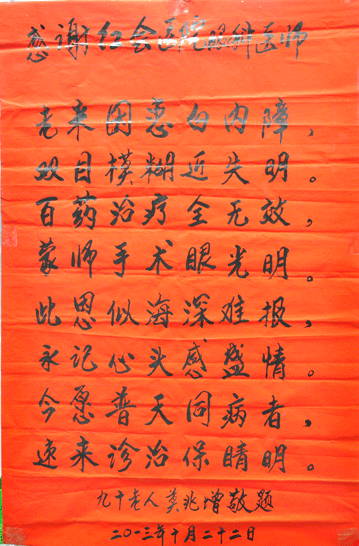 感谢红会医院眼科医师
老来因患白内障，
双目模糊近失明。
百药治疗全无效，
蒙师手术眼光明。
此恩似海深难报，
永记心头感盛情。
今愿普天同病者，
速来诊治保睛明。
九十老人黄兆增敬题
二〇一三年十月二十二日